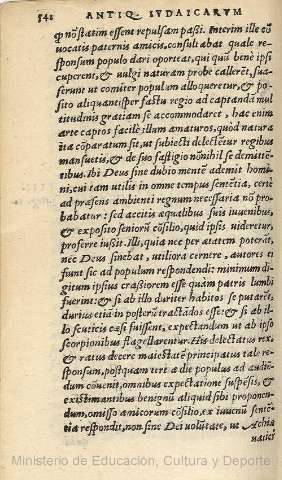 542 ANTIQ. IVDAICARVM
ꝙ nō statim essent repulsam passi. Interim ille cō
uocatis paternis amicis, consultabat quale re-
sponsum populo dari oporteat, qui quū benè ipsi
cuperent, & uulgi naturam probe callerēt, sua-
serunt ut comiter populum alloqueretur, & po-
sito aliquantisper fastu regio ad captandā mul
titudinis gratiam se accommodaret, hac enim
arte captos facilè illum amaturos, quòd natura
ita cōparatum sit, ut subiecti delectētur regibus
mansuetis, & de suo fastigio nōnihil se demittē-
tibus. Ibi Deus sine dubio mentē ademit homi-
ni, cui tam utilis in omne tempus sentētia, certè
ad præsens ambienti regnum necessaria nō pro-
babatur: sed accitis æqualibus suis iuuenibus,
& exposito seniorū cōsilio, quid ipsis uideretur,
proferre iussit. Illi, quia nec per ætatem poterāt,
nec Deus sinebat, utiliora cernere, autores ei
fiunt sic ad populum respondendi: minimum di-
gitum ipsius crassiorem esse quàm patris lumbi
fuerint: & si ab illo duriter habitos se putarēt,
durius etiā in posterū tractados esse: & si ab il-
lo scuticis cæsi fuissent, expectandum ut ab ipso
scorpionibus flagellarentur. His delectatus rex,
& ratus decere maiestatē principatus tale re-
sponsum, postquam tertia die populus ad audiē-
dum cōuenit, omnibus expectatione suspēsis, &
existimantibus benignū aliquid sibi proponen-
dum, omisso amicorum cōsilio, ex iuuenū sentē-
tia respondit, non sine Dei uolūtate, ut Achia
uatici
Ministerio de Educación, Cultura y Deporte